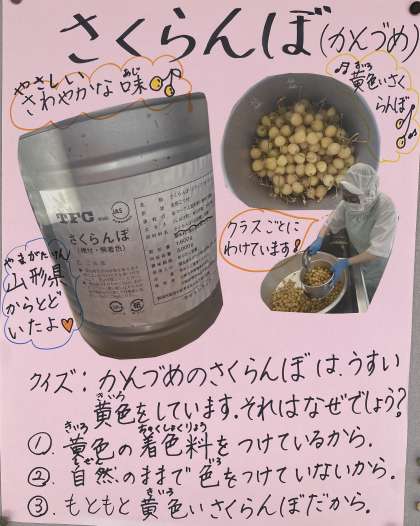 さくらんぼ(かんづめ)
やさしい
さわやかな味
あじ
黄色いさく
きいろ
らんぼ
TFC
JAS
さくらんぼ
(枝付・無着色)
クラスごとに
わけています!
やまがたけん
山形県
からとど
いたよ♡
クイズ:かんづめのさくらんぼは、うすい
きいろ
黄色をしています。それはなぜでしょう?
きいろ ちゃくしょくりょう
①. 黄色の着色料をつけているから.
しぜん いろ
②. 自然のままで色をつけていないから.
きいろ
③. もともと黄色いさくらんぼだから.